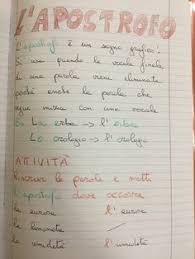 L'APOSTROFO
L'apostrofo è un segno grafico!
Si usa quando la vocale finale
di una parola viene eliminata
perché anche la parola che
segue inizia con una vocale
Es La erba → l'erba
Lo orologio → l'orologio
ATTIVITÀ
Riscrivi le parole e metti
l'apostrofo dove occorre
la aurora l'aurora
la limonata /
la umidità l'umidità